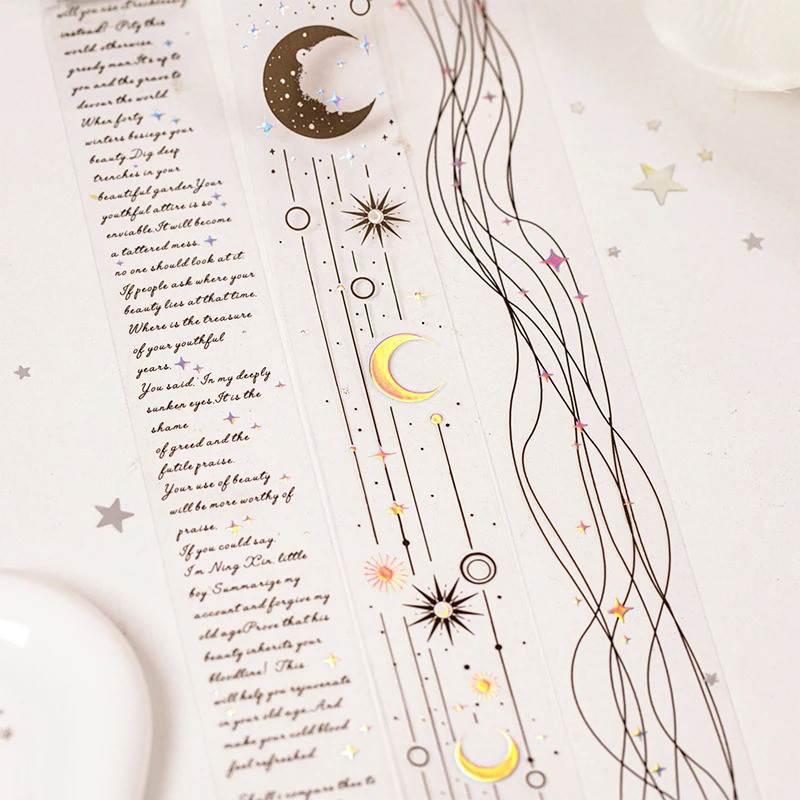 will you use it recklessly
instead? Pity this
world otherwise.
greedy man.It's up to
you and the grave to
devour the world
When forty
winters besiege your
beauty.Dig deep
trenches in your
beautiful garden.Your
youthful attire is so
enviable.It will become
a tattered mess.
no one should look at it.
If people ask where your
beauty lies at that time.
Where is the treasure
of your youthful
years.
You said.'In my deeply
sunken eyes.It is the
shame
of greed and the
futile praise.
Your use of beauty
will be more worthy of
praise.
If you could say.'
I'm Ning Xin. little
boy'.Summarize my
account and forgive my
old age.Prove that his
beauty inherits your
bloodline! This
will help you rejuvenate
in your old age.And
make your cold blood
feel refreshed.
Shall compare thee to